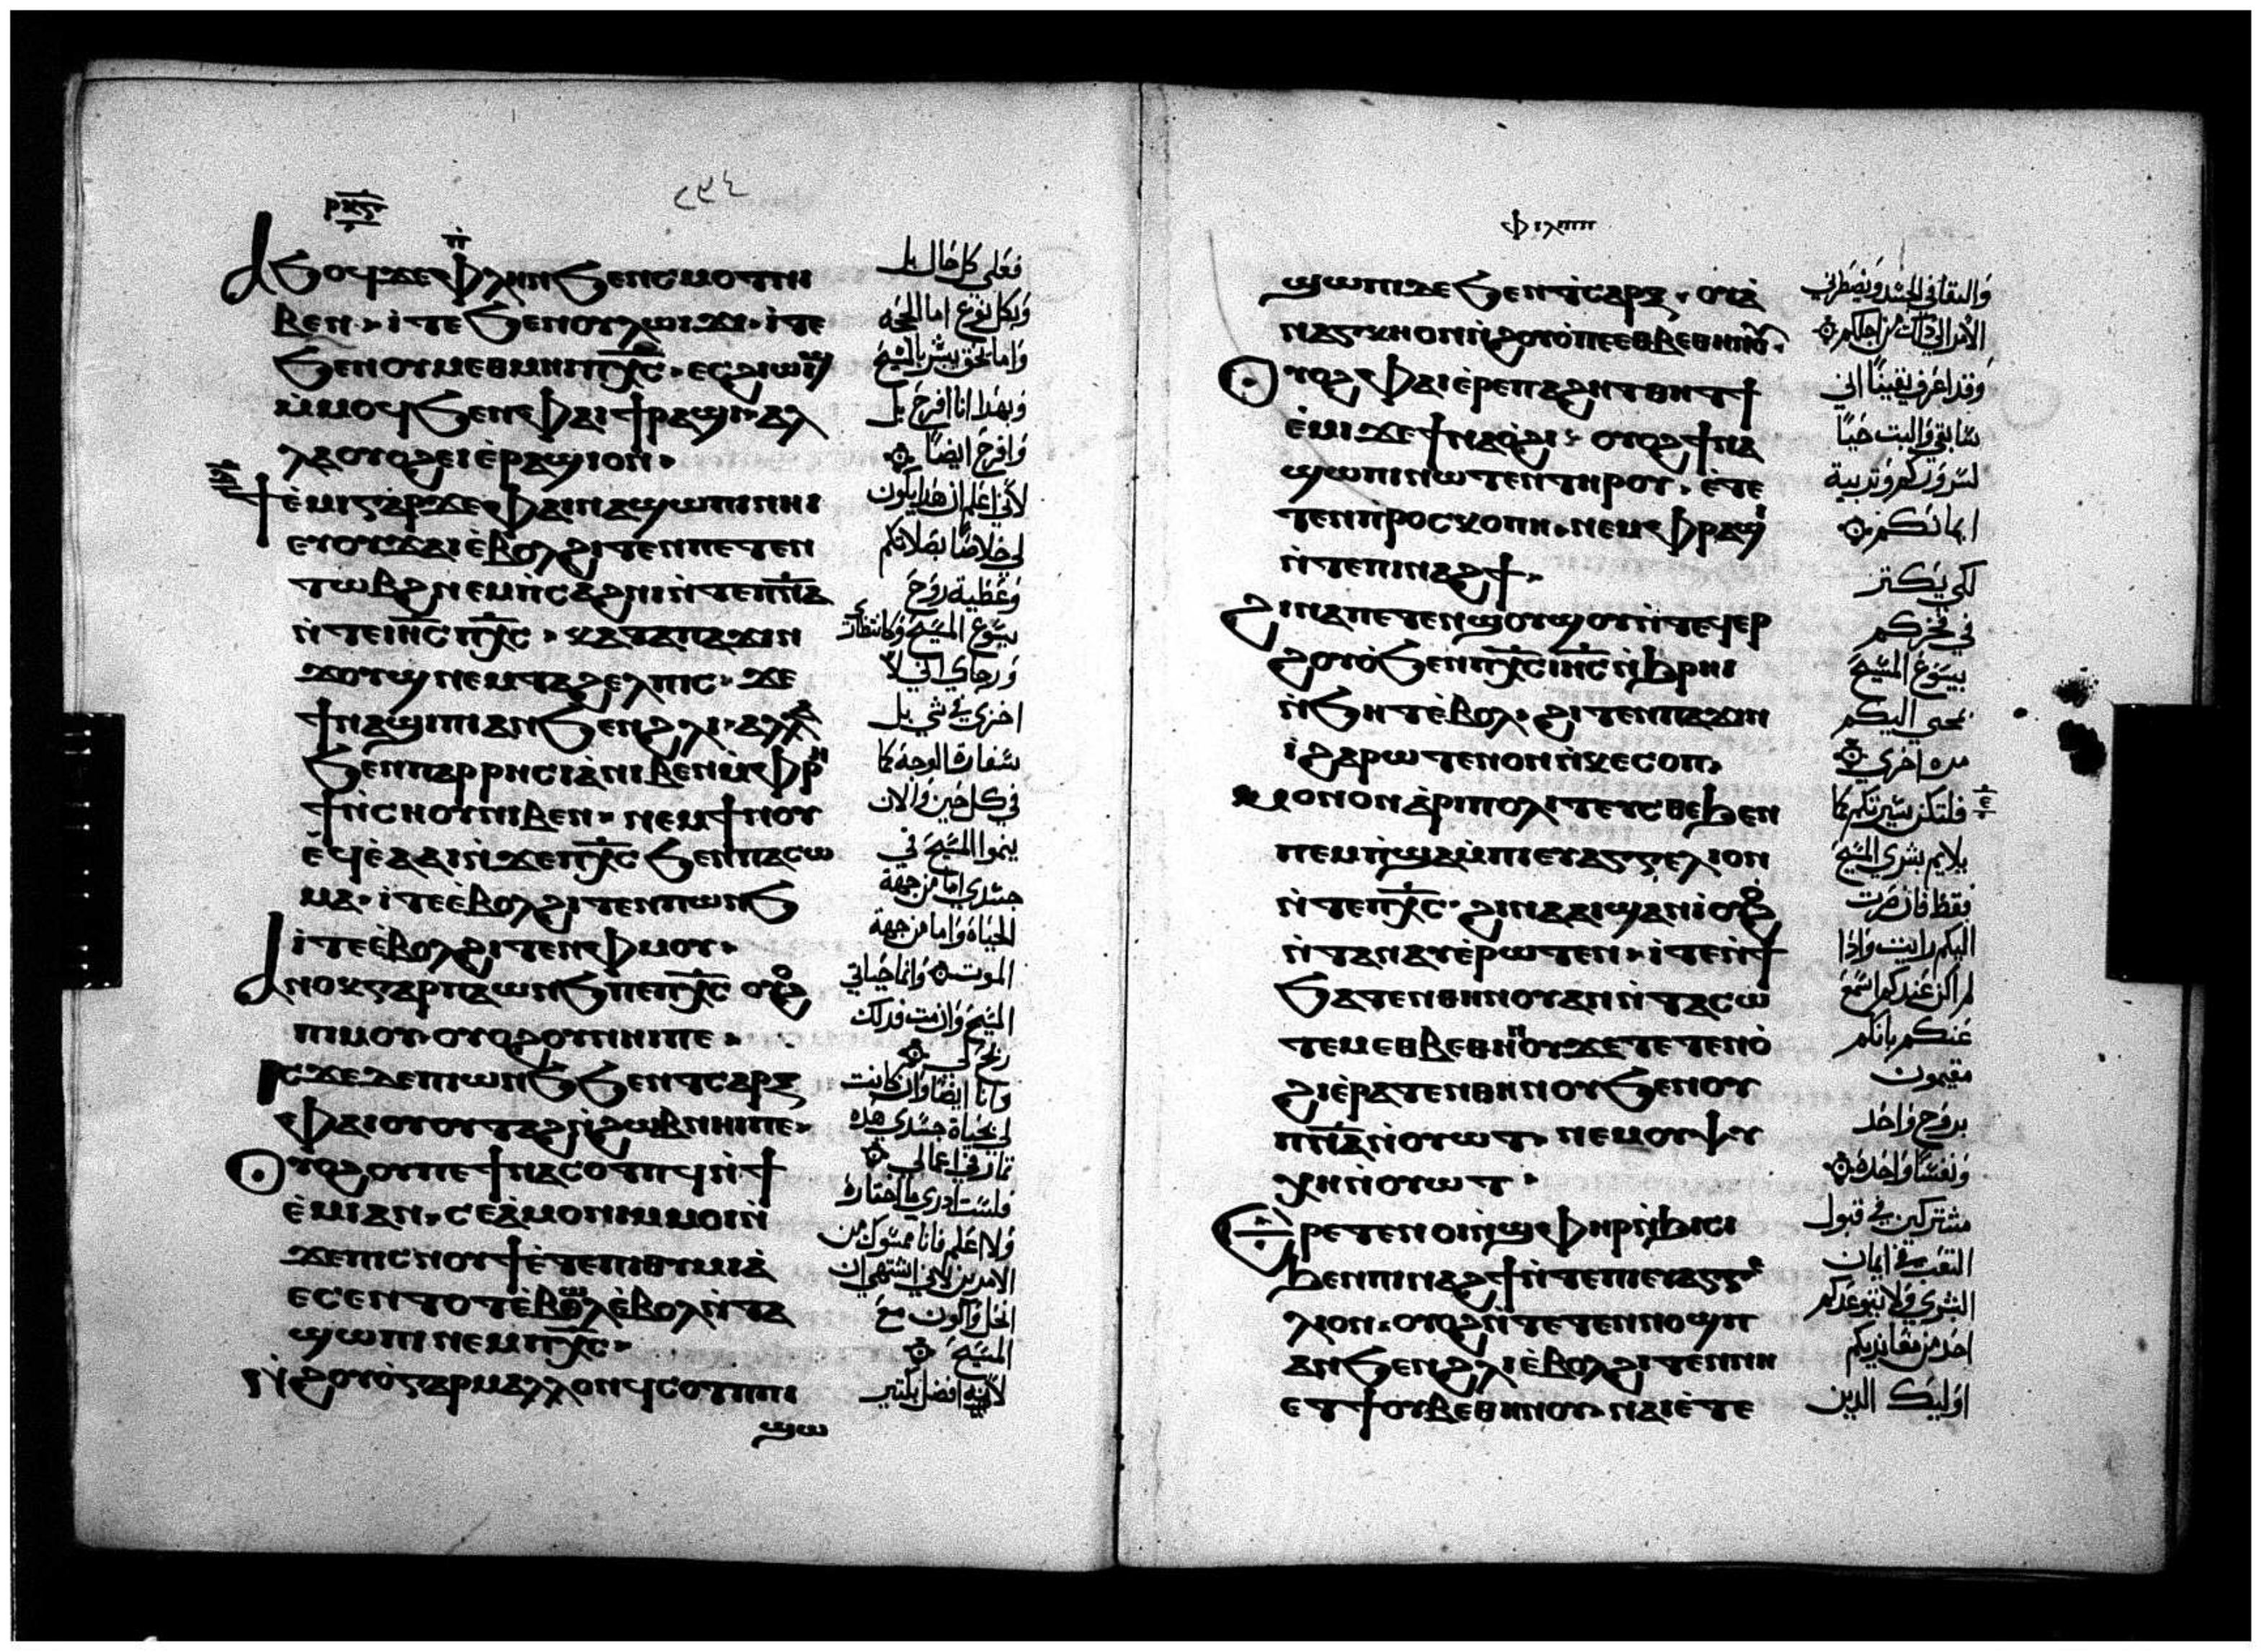 ⲣⲕ̅ⲋ
٢٩٤
ⲁϧⲟϥ ϫⲉ ⲫⲗⲏⲛ ϧⲉⲛ ⲥⲙⲟⲧ ⲛⲓ
ⲃⲉⲛ · ⲓⲧⲉ ϧⲉⲛ ⲟⲩⲗⲱⲓϫⲓ · ⲓⲧⲉ
ϧⲉⲛ ⲟⲩⲙⲉⲑⲙⲏⲓ ⲡⲭ̅ⲥ · ⲥⲉϩⲓⲱⲓϣ
ⲙ̀ⲙⲟϥ ϧⲉⲛ ⲫⲁⲓ ϯⲣⲁϣⲓ · ⲁⲗ
ⲗⲁ ⲟⲩⲟϩ ⲉⲓⲉ̀ⲣⲁϣⲓ ⲟⲛ ·
ϯⲉ̀ⲙⲓ ⲅⲁⲣ ϫⲉ ⲫⲁⲓ ⲛⲁϣⲱⲡⲓ ⲛⲏⲓ
ⲉⲩⲟⲩϫⲁⲓ ⲉ̀ⲃⲟⲗ ϩⲓⲧⲉⲛ ⲡⲉⲧⲉⲛ
ⲧⲱⲃϩ ⲛⲉⲙ ⲡ̀ⲥⲁϩⲛⲓ ⲛ̀ⲧⲉ ⲡⲓⲡ̅ⲛ̅ⲁ
ⲛ̀ⲧⲉ ⲓⲏ̅ⲥ ⲡⲭ̅ⲥ · ⲕⲁⲧⲁ ⲡⲁϫⲓⲛ
ϫⲟⲩϣⲧ ⲛⲉⲙ ⲧⲁϩⲉⲗⲡⲓⲥ · ϫⲉ
ϯⲛⲁϣⲓⲡⲓ ⲁⲛ ϧⲉⲛ ϩⲗⲓ · ⲁⲗⲗⲁ
ϧⲉⲛ ⲡⲁⲣⲣⲏⲥⲓⲁ̀ ⲛⲓⲃⲉⲛ ⲙ̀ⲫⲣⲏ
ϯ ⲛ̀ⲥⲏⲟⲩ ⲛⲓⲃⲉⲛ · ⲛⲉⲙ ϯⲛⲟⲩ
ⲉϥⲉ̀ⲁⲓⲁⲓ ⲛ̀ϫⲉ ⲡⲭ̅ⲥ ϧⲉⲛ ⲡⲁⲥⲱ
ⲙⲁ · ⲓⲧⲉ ⲉ̀ⲃⲟⲗ ϩⲓⲧⲉⲛ ⲡⲱⲛϧ
ⲓⲧⲉ ⲉ̀ⲃⲟⲗ ϩⲓⲧⲉⲛ ⲫⲙⲟⲩ ·
ⲁⲛⲟⲕ ⲅⲁⲣ ⲡⲁⲱⲛϧ ⲡⲉ ⲡⲭ̅ⲥ ⲟⲩⲟϩ
ⲡⲓⲙⲟⲩ · ⲟⲩϩⲟⲩ ⲛⲏⲓ ⲡⲉ ·
ⲓⲥϫⲉ ⲇⲉ ⲡⲓⲱⲛϧ ϧⲉⲛ ⲧⲥⲁⲣⲝ
ⲫⲁⲓ ⲟⲩⲟⲩⲧⲁϩ ⲛ̀ϩⲱⲃ ⲛⲏⲓ ⲡⲉ ·
ⲟⲩⲟϩ ⲟⲩ ⲡⲉ ϯⲛⲁⲥⲟⲧⲡϥ ⲛ̀ϯ
ⲉ̀ⲙⲓ ⲁⲛ · ⲥⲉⲁ̀ⲙⲟⲛⲓ ⲙ̀ⲙⲟⲓ ⲛ̀
ϫⲉ ⲡⲓⲥⲛⲟⲩϯ ⲉ̀ⲧⲉ ⲡⲓⲑⲩⲙⲓⲁ̀
ⲉⲥⲉⲛⲧⲟⲧ ⲉ̀ⲃⲱⲗ ⲉ̀ⲃⲟⲗ ⲛ̀ⲧⲁ
ϣⲱⲡⲓ ⲛⲉⲙ ⲡⲭ̅ⲥ ·
ⲛ̀ϩⲟⲩⲟ̀ ⲅⲁⲣ ⲙⲁⲗⲗⲟⲛ ϥⲥⲟⲧⲡ ⲡⲓ
ϣⲱ
فعلى كل حال بل
وبكل نوع اما لحجه
واما بحق يبشر بالمسيح
وبهذا انا افرح بل
وافرح ايضا
لاني اعلم ان هذا يكون
لي خلاصا بصلاتكم
وعطية روح
يسوع المسيح وكانتظاري
ورجاي اني لا
اخزى في شي بل
بسفارة الوجه كما
في كل حين والان
ينموا المسيح في
جسدي اما من جهة
الحياة واما من جهة
الموت وانما حياتي
المسيح وان مت فذلك
ربح لي
وانا ايضا وان كانت
لي بحياة جسدي هذه
ثمار في اعمالي
فلست ادري ما اختاره
ولا اعلم فانا ممسوك من
الامرين لاني اشتهي ان
انحل واكون مع
المسيح
لانه افضل بكتير
ⲫⲓⲗⲓⲡⲡ
ϣⲱⲡⲓ ⲇⲉ ϧⲉⲛ ⲧⲥⲁⲣⲝ · ⲟⲩⲁ̀
ⲛⲁⲅⲕⲏ ⲟⲛ ⲛ̀ϩⲟⲩⲟ̀ ⲡⲉ ⲉⲑⲃⲉⲑⲏⲛⲟⲩ
ⲟⲩⲟϩ ⲫⲁⲓ ⲉ̀ⲣⲉ ⲡⲁϩⲏⲧ ⲑⲏⲧ ϯ
ⲉ̀ⲙⲓ ϫⲉ ϯⲛⲁⲟ̀ϩⲓ · ⲟⲩⲟϩ ϯⲛⲁ
ϣⲱⲡⲓ ⲛⲱⲧⲉⲛ ⲧⲏⲣⲟⲩ · ⲉ̀ⲧⲉ
ⲧⲉⲛⲡⲣⲟⲥⲕⲟⲡⲏ · ⲛⲉⲙ ⲫⲣⲁϣⲓ
ⲛ̀ⲧⲉ ⲡⲓⲛⲁϩϯ ·
ϩⲓⲛⲁ ⲡⲉⲧⲉⲛϣⲟⲩϣⲟⲩ ⲛ̀ⲧⲉϥⲉⲣ
ϩⲟⲩⲟ̀ ϧⲉⲛ ⲡⲭ̅ⲥ ⲓⲏ̅ⲥ ⲛ̀ϧⲣⲏⲓ
ⲛ̀ϧⲏⲧ ⲉ̀ⲃⲟⲗ · ϩⲓⲧⲉⲛ ⲡⲁϫⲓⲛ
ⲓ̀ ϩⲁⲣⲱⲧⲉⲛ ⲟⲛ ⲛ̀ⲕⲉⲥⲟⲡ ·
ⲙⲟⲛⲟⲛ ⲁ̀ⲣⲓⲡⲟⲗⲓⲧⲉⲩⲥⲑⲉ ϧⲉⲛ
ⲡⲉⲙⲡ̀ϣⲁ ⲙ̀ⲡⲓⲉⲩⲁⲅⲅⲉⲗⲓⲟⲛ
ⲛ̀ⲧⲉ ⲡⲭ̅ⲥ · ϩⲓⲛⲁ ⲁⲓϣⲁⲛⲓ̀ ⲟⲩⲟϩ
ⲛ̀ⲧⲁⲛⲁⲩ ⲉ̀ⲣⲱⲧⲉⲛ · ⲓⲧⲉ ⲛ̀ϯ
ϧⲁⲧⲉⲛ ⲑⲏⲛⲟⲩ ⲁⲛ ⲛ̀ⲧⲁⲥⲱ
ⲧⲉⲙ ⲉⲑⲃⲉⲑⲏⲛⲟⲩ ϫⲉ ⲧⲉⲧⲉⲛⲟ̀
ϩⲓ ⲉ̀ⲣⲁⲧⲉⲛ ⲑⲏⲛⲟⲩ ϧⲉⲛ ⲟⲩ
ⲡ̅ⲛ̅ⲁ ⲛ̀ⲟⲩⲱⲧ · ⲛⲉⲙ ⲟⲩⲯⲩ
ⲭⲏ ⲛ̀ⲟⲩⲱⲧ ·
ⲉⲣⲉⲧⲉⲛⲟⲓ ⲛ̀ϣⲫⲏⲣ ⲛ̀ϧⲓⲥⲓ
ϧⲉⲛ ⲡⲓⲛⲁϩϯ ⲛ̀ⲧⲉ ⲡⲓⲉⲩⲁⲅⲅⲉ
ⲗⲓⲟⲛ · ⲟⲩⲟϩ ⲛ̀ⲧⲉⲧⲉⲛⲛⲟϣⲡ
ⲁⲛ ϧⲉⲛ ϩⲗⲓ ⲉ̀ⲃⲟⲗ ϩⲓⲧⲉⲛ ⲛⲏ
ⲉⲧϯ ⲟⲩⲃⲉⲑⲏⲛⲟⲩ · ⲛⲁⲓ ⲉ̀ⲧⲉ
والبقا في الجسد ويضطرني
الامر الى ذلك من اجلكم
وقد اعرف يقينا اني
سابقي والبث حيا
لسروركم وتربية
ايمانكم
لكي يكتر
فخركم
بيسوع المسيح
بمجي اليكم
مره اخرى
فلتكن سيرتكم كما
يلايم بشرى المسيح
فقط فان صرت
اليكم رايت واذا
لم اكن عندكم اسمع
عنكم بانكم
مقيمون
بروح واحد
ونفسا واحده
مشتركين في قبول
التعب في ايمان
البشرى ولا
احد من مقاوميكم
اوليك الدين